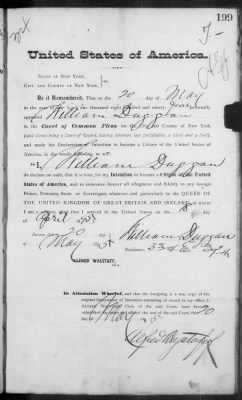 199
United States of America.
STATE OF NEW YORK,
CITY AND COUNTY OF NEW YORK,
Be it Remembered, That on the 20 day of May
in the year of our Lord one thousand eight hundred and ninety personally
appeared William Duggan
in the Court of Common Pleas for the City and County of New York
(said Court being a Court of Record, having common law jurisdiction, a Clerk and a Seal),
and made his Declaration of Intention to become a Citizen of the United States
of America, in the words following, to wit:
"I, William Duggan
do declare on oath, that it is bona fide my Intention to become a Citizen of the United
States of America, and to renounce forever all allegiance and fidelity to any foreign
Prince, Potentate, State or Sovereignty whatever, and particularly to the QUEEN OF
THE UNITED KINGDOM OF GREAT BRITAIN AND IRELAND, of whom
I am a subject, and that I arrived in the United States on the 18 day
of April
Sworn this 20 day of
May
William Duggan
ALFRED WAGSTAFF,
Clerk.
In Attestation Whereof, and that the foregoing is a true copy of the
original Declaration of Intention remaining of record in my office, I,
Alfred Wagstaff, Clerk of the said Court have hereunto
subscribed my name and affixed the seal of the said Court this 20
day of May
Alfred Wagstaff